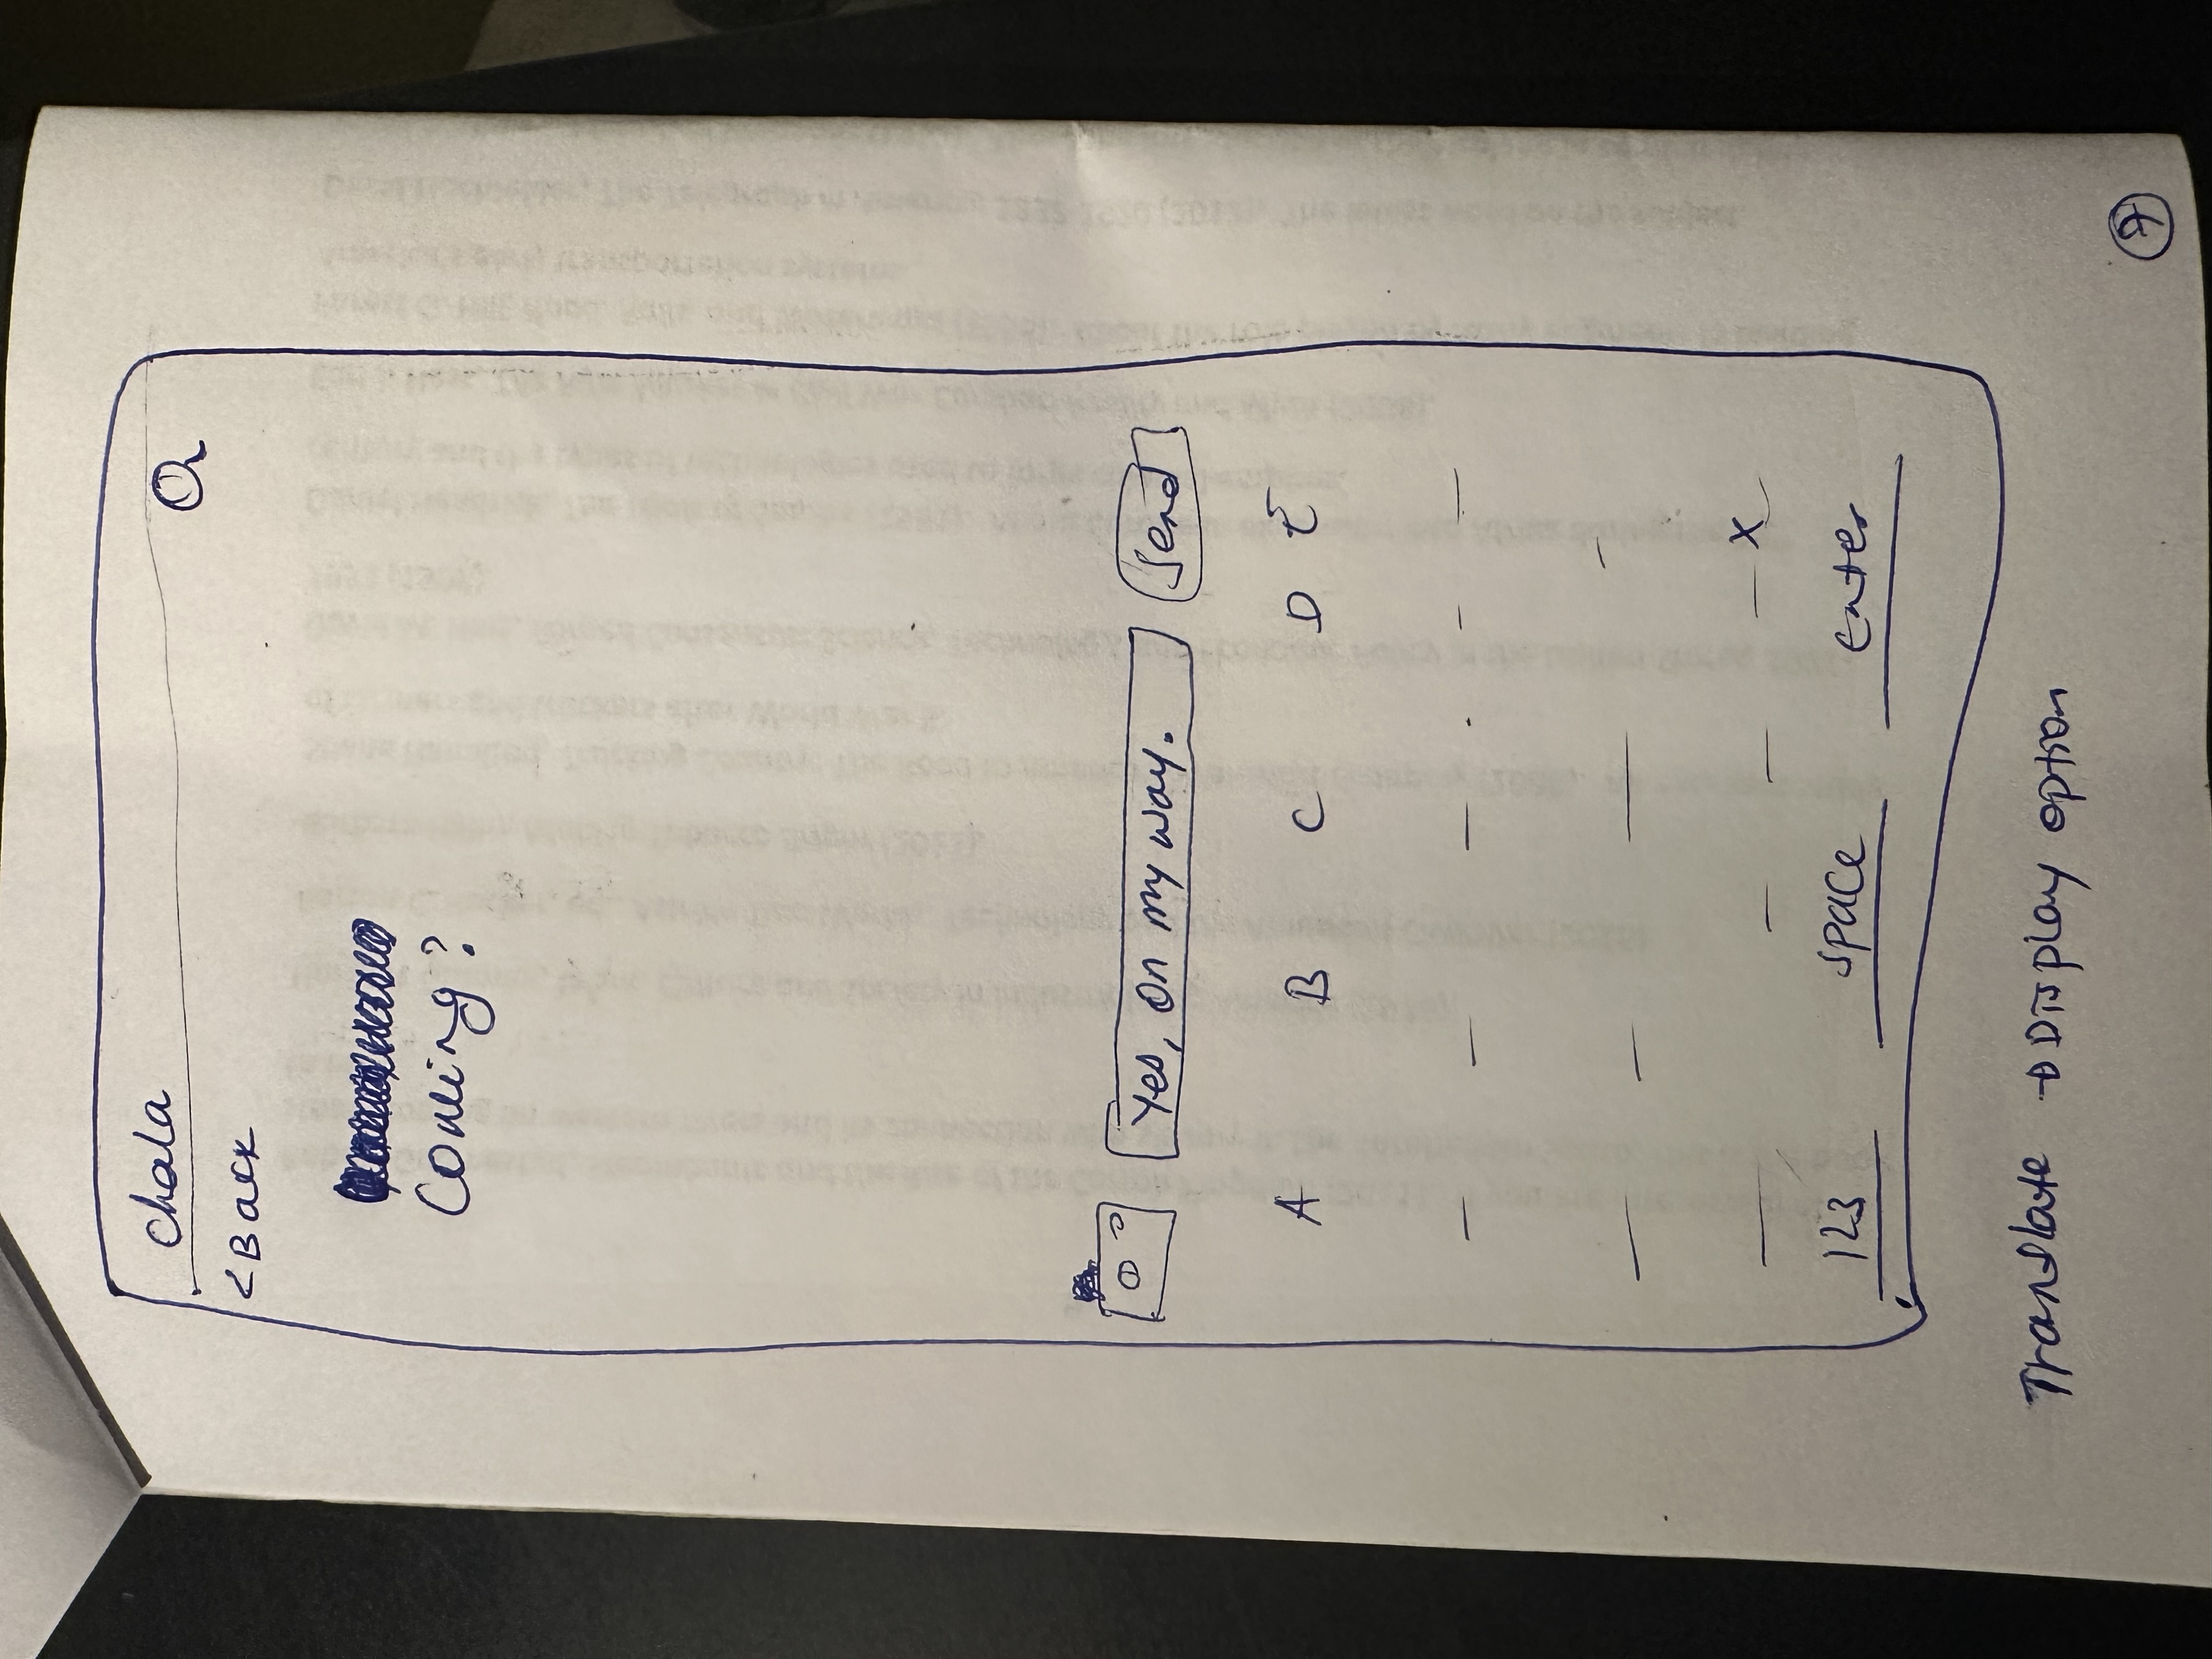 Chala
<Back
Coming?
Yes, on my way. Send
A B C D E
X
123 space enter
Translate → Display option
7